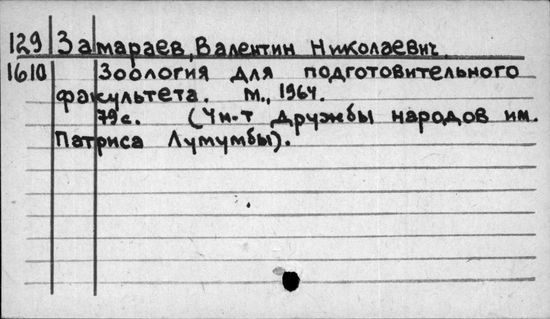 129 Замараев, Валентин Николаевич.
1610 Зоология для подготовительного
факультета. М., 1964.
79 с. (Ун-т Дружбы народов им.
Патриса Лумумбы).